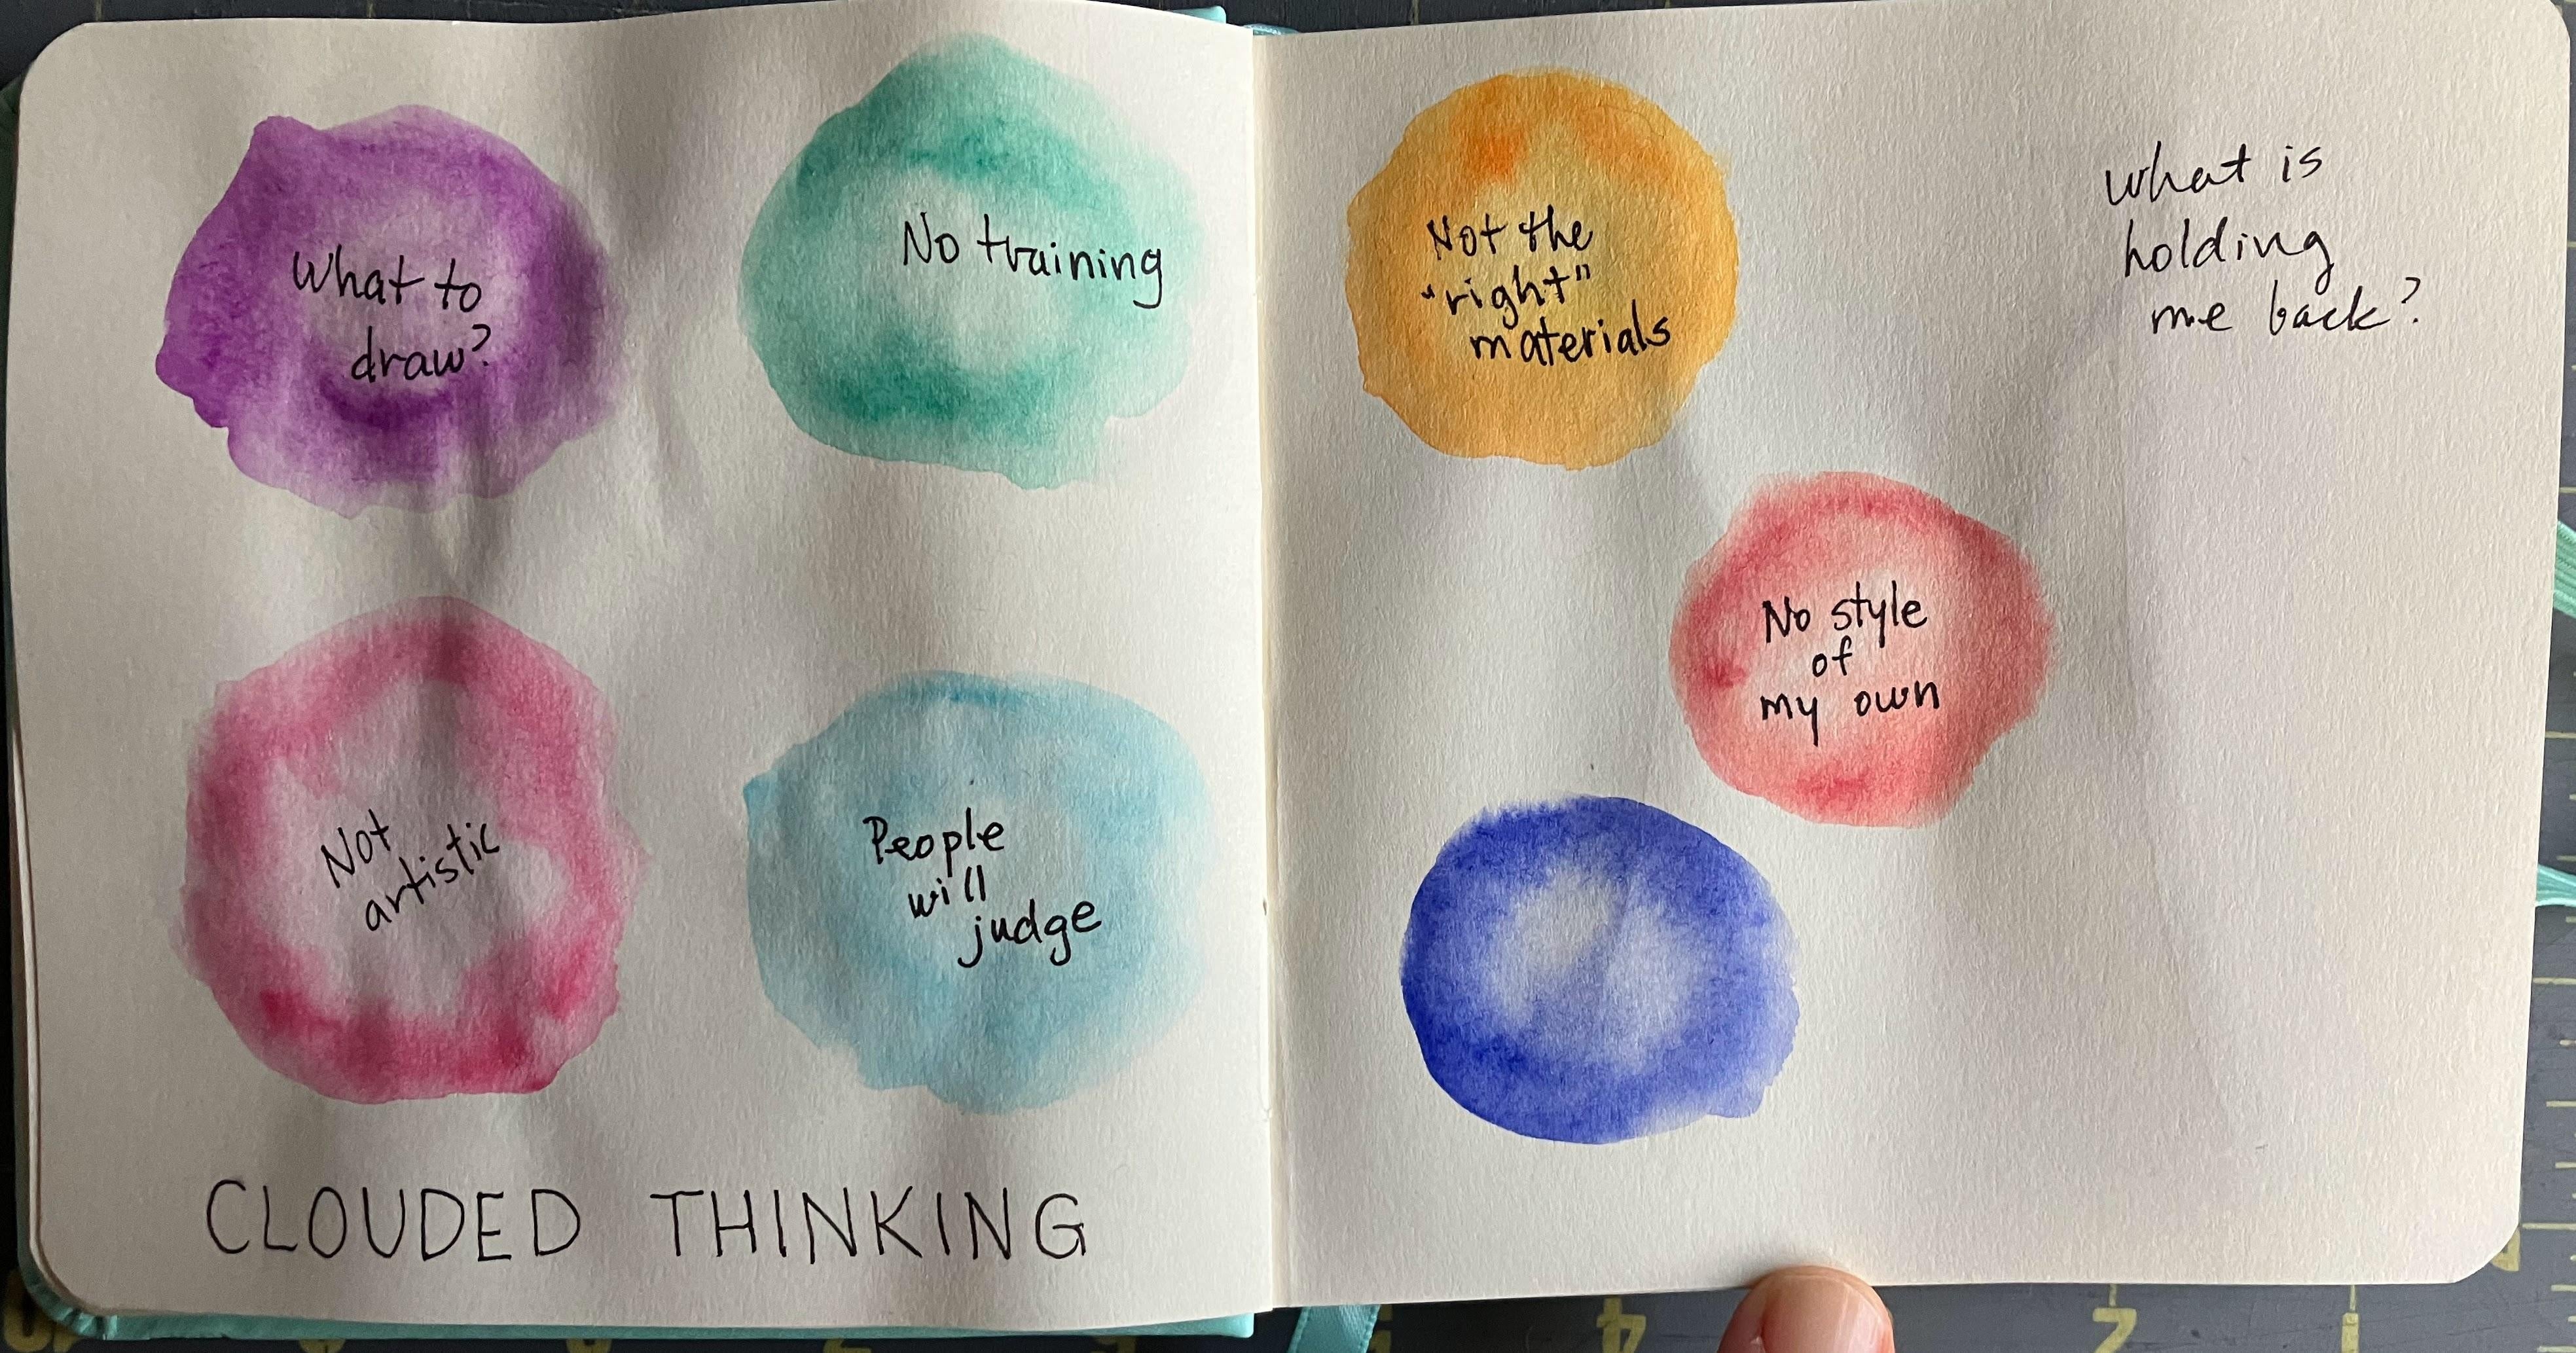 What to
draw?
No training
Not
artistic
People
will
judge
CLOUDED THINKING
Not the
"right"
materials
what is
holding
me back?
No style
of
my own
4
2
1